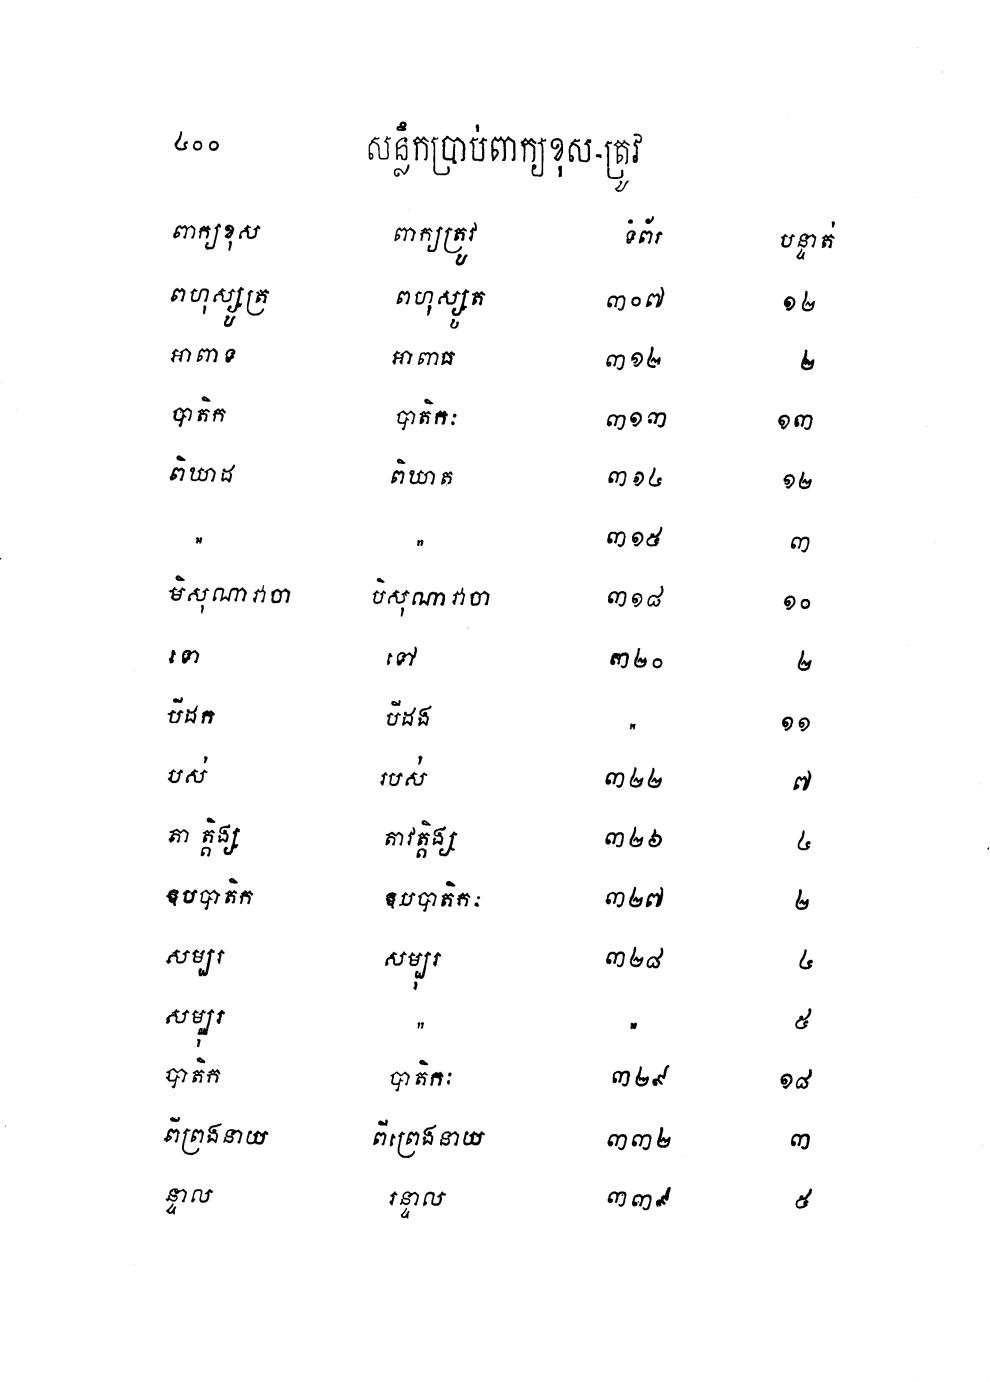 ៤០០ សន្លឹកប្រាប់ពាក្យខុស-ត្រូវ
ពាក្យខុស ពាក្យត្រូវ ទំព័រ បន្ទាត់
ពហុស្សូត្រ ពហុស្សូត ៣០៧ ១៤
អាពាទ អាពាធ ៣១២ ២
បាតិក បាតិកៈ ៣១៣ ១៣
ពិឃាដ ពិឃាត ៣១៤ ១២
" " ៣១៥ ៣
មិសុណាវាចា បិសុណាវាចា ៣១៨ ១០
ទោ ទៅ ៣២០ ២
បីដក បីដង " ១១
បស់ របស់ ៣២២ ៧
តា ត្តិង្ស តាវត្តិង្ស ៣២៦ ៤
ឧបបាតិក ឧបបាតិកៈ ៣២៧ ២
សម្បូរ សម្បុរ ៣២៨ ៤
សម្បុរ " " ៥
បាតិក បាតិកៈ ៣២៩ ១៨
ពីព្រងនាយ ពីព្រេងនាយ ៣៣២ ៣
ន្ទាល រន្ទាល ៣៣៩ ៥